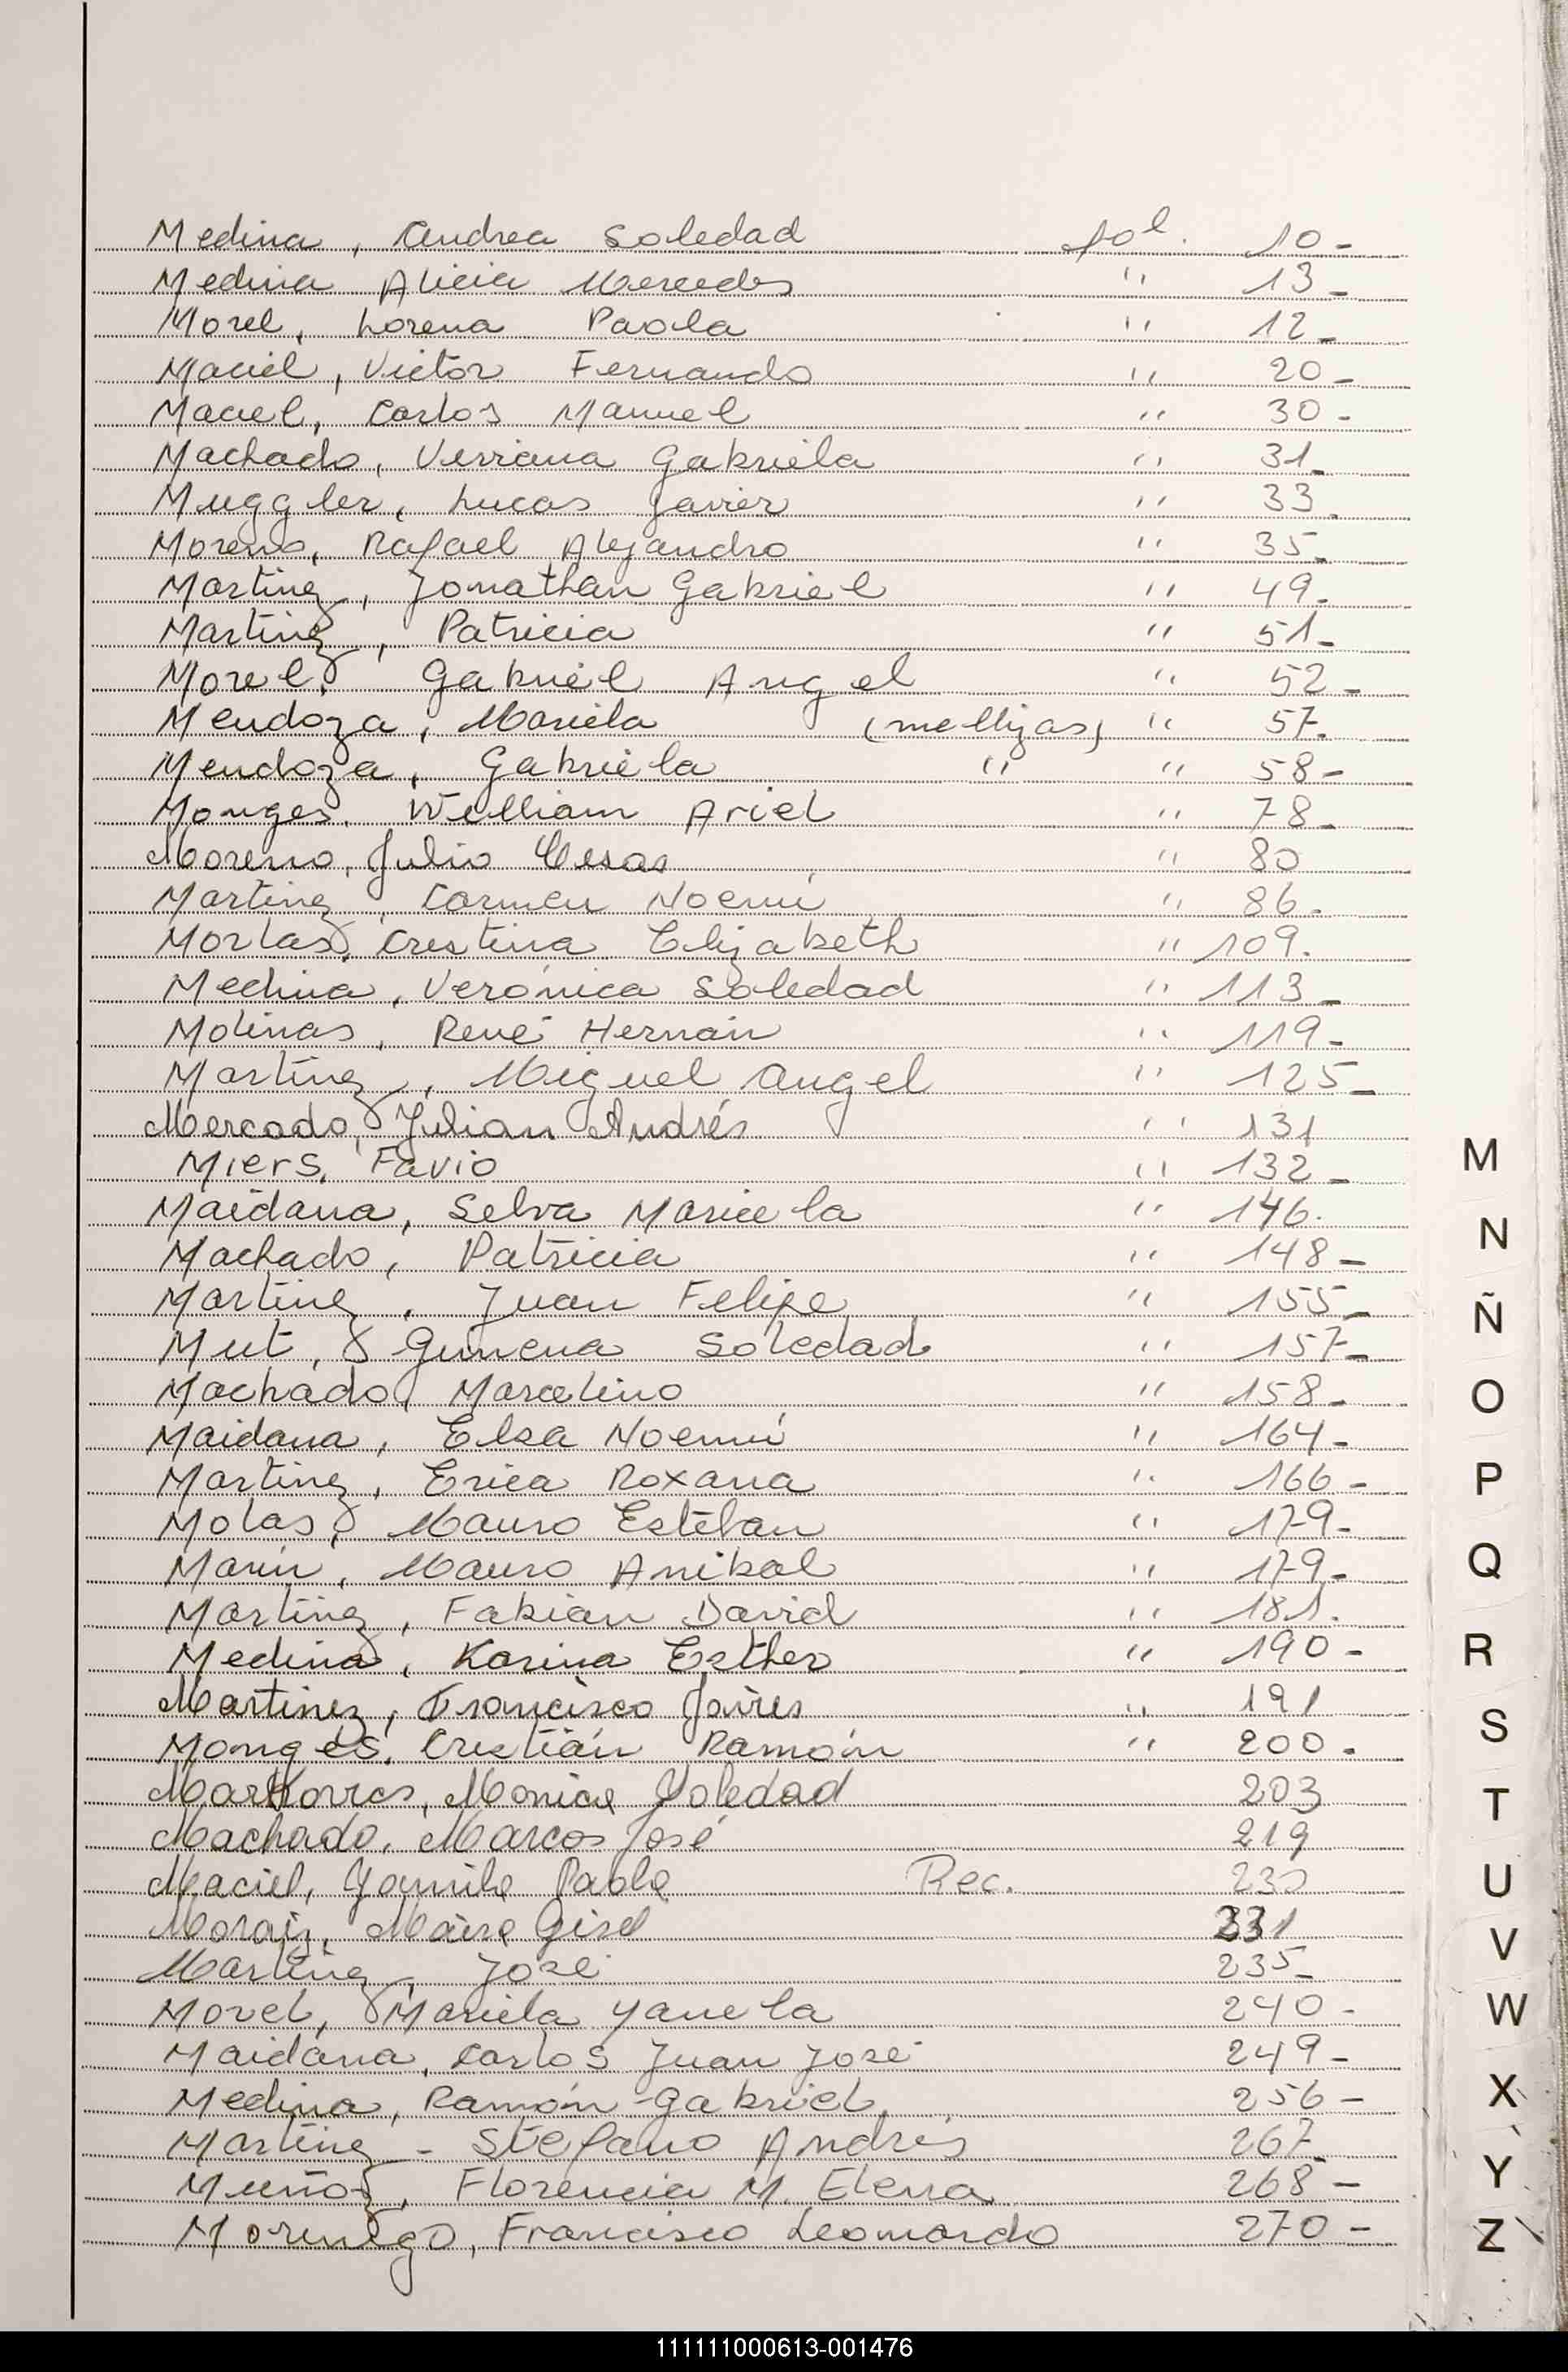 Medina, Andrea Soledad fol. 10-
Medina Alicia Mercedes " 13-
Morel, Lorena Paola " 12-
Maciel, Victor Fernando " 20-
Maciel, Carlos Manuel " 30-
Machado, Viviana Gabriela " 31-
Muggler, Lucas Javier " 33.
Moreno, Rafael Alejandro " 35-
Martinez, Jonathan Gabriel " 49-
Martinez, Patricia " 51-
Morel, Gabriel Angel " 52-
Mendoza, Mariela (mellizas) " 57-
Mendoza, Gabriela " " 58-
Monges, William Ariel " 78-
Moreno, Julio Cesar " 80
Martinez, Carmen Noemí " 86-
Morlas, Cristina Elizabeth " 109.
Medina, Verónica Soledad " 113-
Molinas, René Hernán " 119-
Martinez, Miguel Angel " 125-
Mercado, Julian Andrés " 131
Miers, Favio " 132-
Maidana, Selva Maricela " 146.
Machado, Patricia " 148-
Martinez, Juan Felipe " 155-
Mut, Gimena Soledad " 157-
Machado, Marcelino " 158-
Maidana, Elsa Noemí " 164-
Martinez, Erica Roxana " 166-
Molas, Mauro Esteban " 179-
Marin, Mauro Anibal " 179-
Martinez, Fabian David " 181.
Medina, Karina Esther " 190-
Martinez, Francisco Javier " 191
Monges, Cristián Ramón " 200.
Monica Soledad 203
Machado, Marcos José 219
Maciel, Yamila Paola Rec. 230
Moraiz, Gisel 231
Martinez, José 235-
Morel, Mariela Yanela 240-
Maidana, Carlos Juan José 249-
Medina, Ramón Gabriel 256-
Martinez - Stefano Andrés 267
Muñoz, Florencia M. Elena 268-
Morinigo, Francisco Leonardo 270-
M
N
Ñ
O
P
Q
R
S
T
U
V
W
X
Y
Z
111111000613-001476